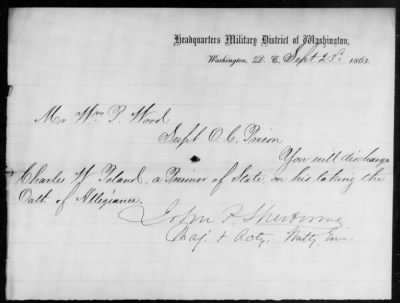 Headquarters Military District of Washington,
Washington, D. C. Sept 23d 1863.
Mr Wm P. Wood
Supt O. C. Prison
You will discharge
Charles W. Poland, a Prisoner of State, on his taking the
Oath of Allegiance.
John
Maj. & Actg.